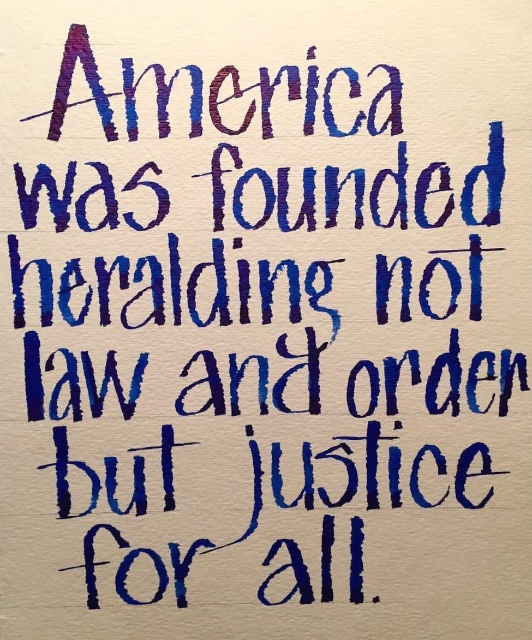 America
was founded
heralding not
law and order
but justice
for all.